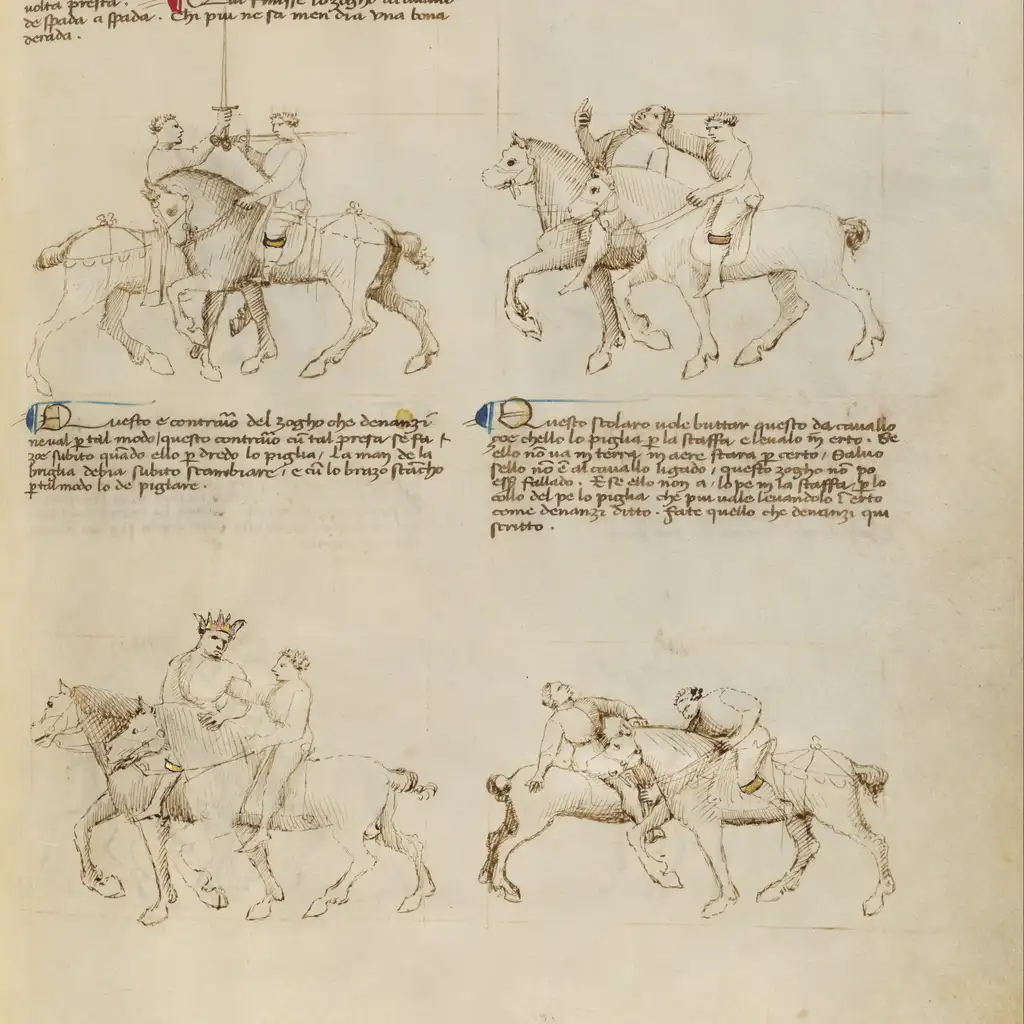 volta presta.
Qui finisse lo zogho
de spada a spada. Chi piu ne sa men dia una bona
derada.
Questo e contrario del zogho che denanzi
ne val p tal modo / questo contrario cu tal presa se fa /
zoe subito quado ello p dredo lo piglia / La man de la
briglia debia subito scambiare / e cu lo brazo stancho
p tal modo lo de pigliare.
Questo scolaro vole buttar questo da cavallo
zoe chello lo piglia p la staffa e levalo in erto. Se
ello no va in terra in aere stara p certo / Salvo
sello no e al cavallo ligado / questo zogho no po
esser fallado. E se ello non a lo pe in la staffa p lo
collo del pe lo piglia che piu vale levandolo in erto
come denanzi ditto. Fate quello che denanzi qui
scritto.